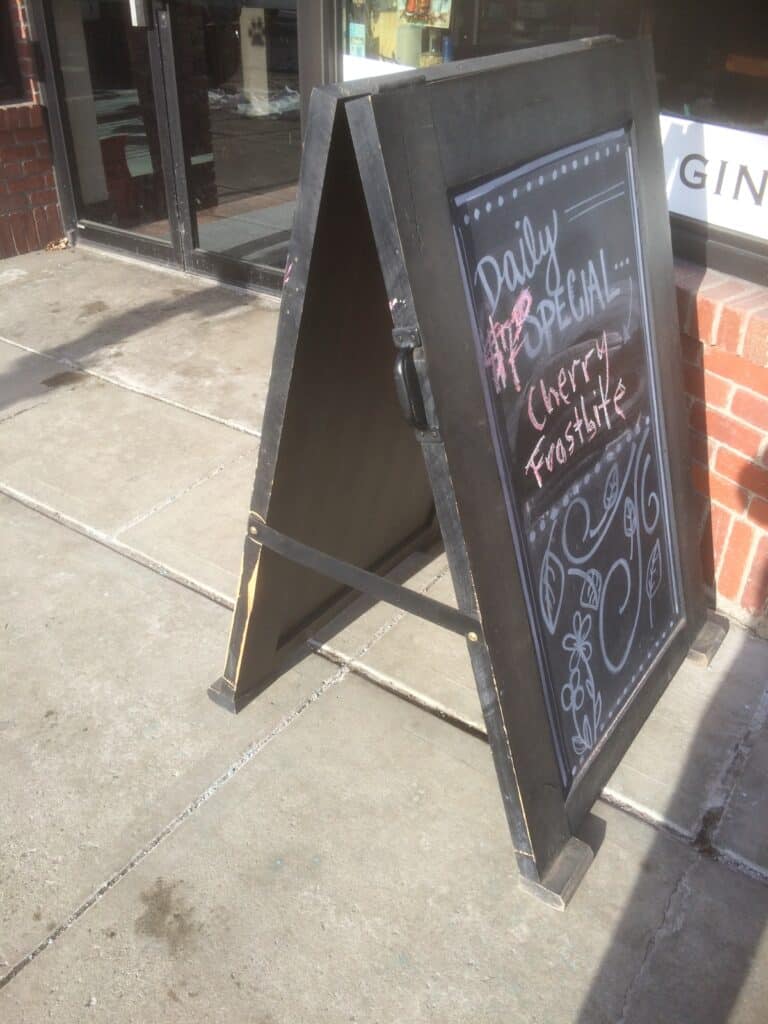 Daily
SPECIAL...
Cherry
Frostbite
GIN